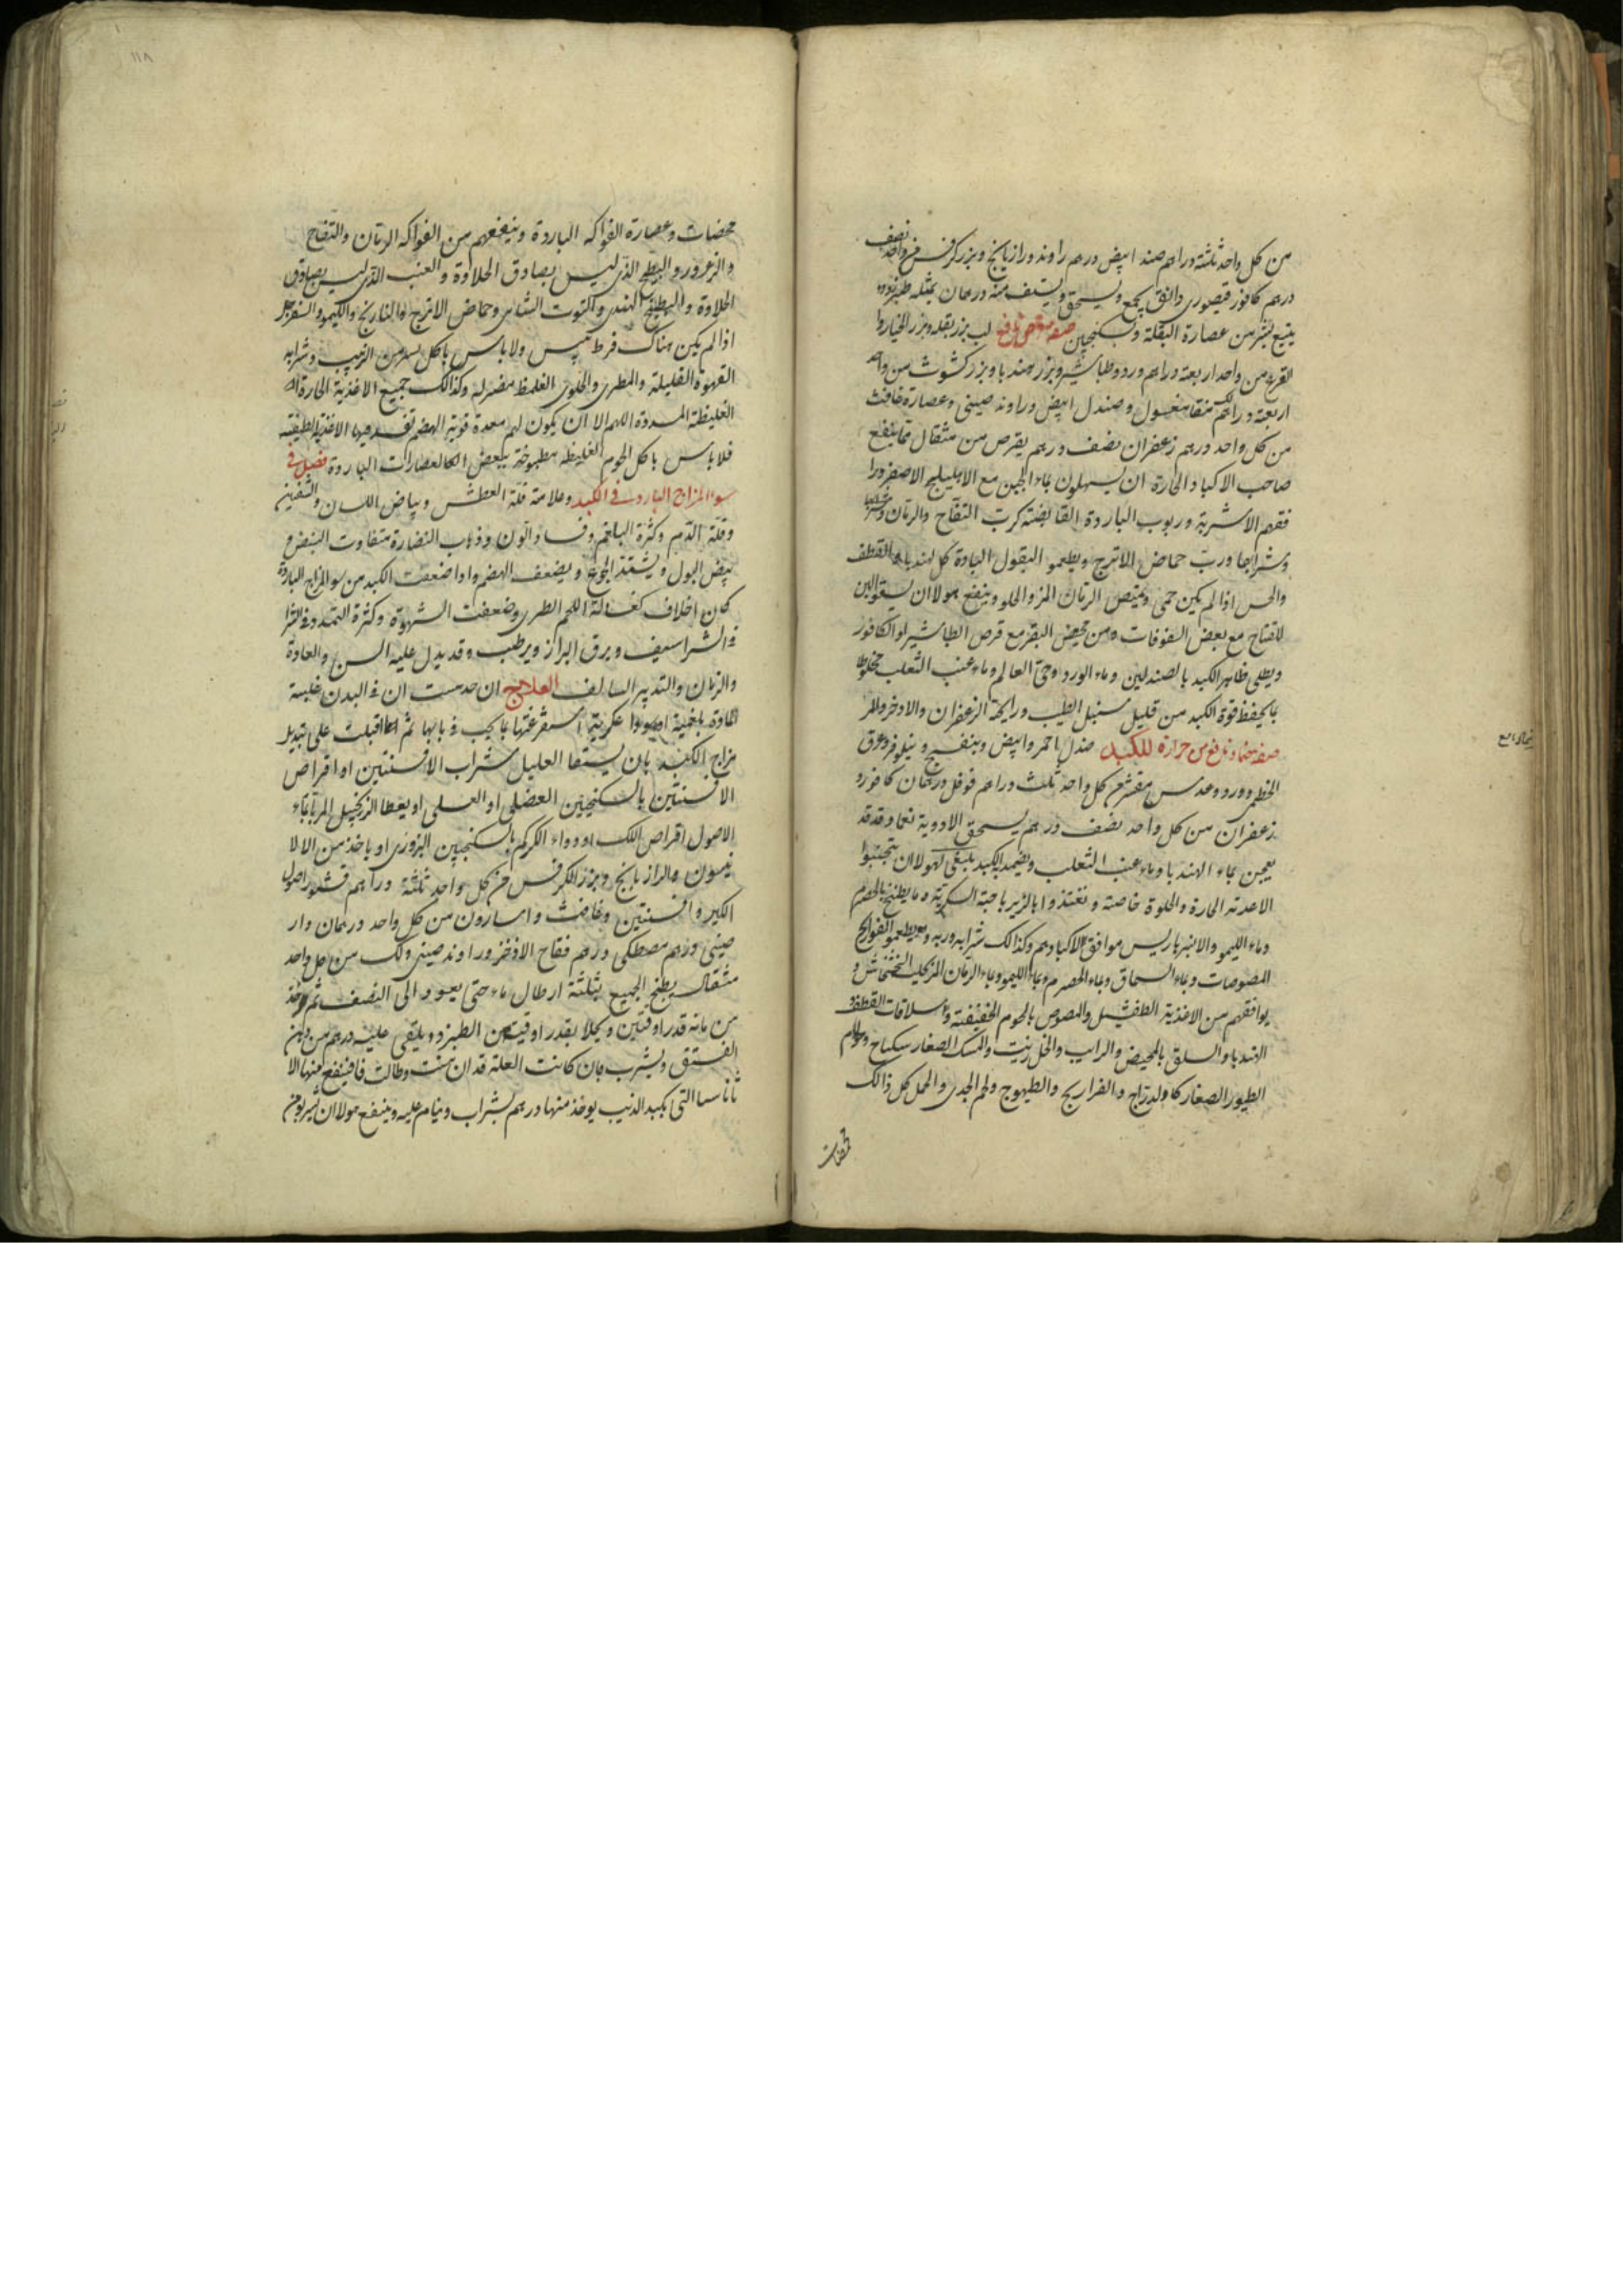 من كل واحد ثلثة دراهم صندل ابيض درهم راوند ورازيانج وبزر كرفس من واحد نصف
درهم كافور قيصوري دانق يجمع ويسحق ويستف منه درهمان بمثله طبرزد و
يتبع بشر من عصارة البقلة وسكنجبين صفة قرص نافع لب بزر بقله وبزر الخيار وا
القرع من واحد اربعة دراهم ورد وطباشير وبزر هندبا وبزر كشوث من واحد
اربعة دراهم لك منقا مغسول وصندل ابيض وراوند صيني وعصارة غافث
من كل واحد درهم زعفران نصف درهم يقرص من مثقال مما ينفع
صاحب الاكباد الحارة ان يسهلون بماء الجبن مع الاهليلج الاصفر ورا
فقهم الاشربة وربوب الباردة القابضة كرب التفاح والرمان
وشرابها ورب حماض الاترج ويطعمو البقول الباردة كل لهندبا والقطف
والخس اذا لم يكن حمى ويمتص الرمان المز والحلو وينفع هولا ان يسقو البن
اللقاح مع بعض السفوفات ومن مخيض البقر مع قرص الطباشير او الكافور
ويطلى ظاهر الكبد بالصندلين وماء الورد وحى العالم وماء عنب الثعلب مخلوطا
بما يحفظ قوة الكبد من قليل سنبل الطيب ورايحة الزعفران والاذخر والمر
صفة ضماد نافع من حرارة للكبد صندل احمر وابيض وبنفسج ونيلوفر وورق
الخطمي وورد وعدس مقشر من كل واحد ثلث دراهم فوفل درهمان كافور و
زعفران من كل واحد نصف درهم يسحق الادوية نعما وقد قد
يعجن بماء الهندبا وماء عنب الثعلب ويضمد الكبد ينبغى لهولا ان يتجنبوا
الاغذية الحارة والحلوة خاصة ونغتذوا بالزيرباجة السكرية وما يطبخ بالحصرم
وماء الليمو والانبرباريس موافق لاكبادهم وكذالك شرابه وربه ويطعمو الفواكه
المصوصات وبماء السماق وبماء الحصرم وبماء الليمو وبماء الرمان المز كحليب الخشخاش و
يوافقهم من الاغذية الطفشيل والمصوص بالحوم الخفيفة واسلاقات القطف و
الهندبا والسلق بالمخيض والرايب والخل زيت والسمك الصغار سكباج ولحوم
الطيور الصغار كاولدراج والفراريج والطيهوج ولحم الجدى والحمل كل ذالك
محمضات
محمضات وعصارة الفواكه الباردة وينفعهم من الفواكه الرمان والتفاح
والزعرور والبطيخ الذى ليس بصادق الحلاوة والعنب الذى ليس بصادق
الحلاوة والبطيخ الهندى والتوت الشامى وحماض الاترج والنارنج والليمو والسفرجل
اذا لم يكن هناك فرط يبس ولا باس باكل يسير من الزبيب وشرابه
القهوة القليلة والمطرى والحلوى الغليظ مضر له وكذالك جميع الاغذية الحارة او
الغليظة المسددة اللهم الا ان يكون لهم معدة قوية الهضم تفسد فيها الاغذية اللطيفة
فلا باس باكل لحوم الغليظه مطبوخة ببعض العصارات الباردة فصل فى
سوء المزاج البارد فى الكبد وعلامة قلة العطش وبياض اللسان والشفتين
وقلة الدم وكثرة البلغم وفساد اللون وذهاب النضارة متفاوت النبض
بيض البول ويشتد الجوع ويضعف الهضم واذا ضعفت الكبد من سو المزاج البارد
كان اخلاف كغسالة اللحم الطرى وضعفت الشهوة وكثرة التمدد
فى الشراسيف ويرق البراز ويرطب وقد يدل عليه السن والعادة
والزمان والتدبير السالف العلاج ان حدست ان فى البدن غلبة
المادة بلغمية استفرغتها بما يجب فى بابها ثم اقبلت على تبديل
مزاج الكبد بان يسقا العليل شراب الافسنتين او اقراص
الافسنتين بالسكنجبين العنصلى او العسلى او يعطا الزنجبيل المربا بماء
الاصول اقراص اللك او دواء الكركم بالسكنجبين البزورى او ياخذ من الا
نيسون والرازيانج وبزر الكرفس من كل واحد ثلثة دراهم قشور اصول
الكبر وافسنتين وغافث واسارون من كل واحد درهمان دار
صينى درهم مصطكى درهم فقاح الاذخر وراوند صينى ولك من كل واحد
مثقال يطبخ الجميع بثلثة ارطال ماء حتى يعود الى النصف ثم يوخذ
من مائه قدر اوقتين ويحلا بقدر اوقيتين الطبرزد ويلقى عليه درهم من دهن
الفستق ويشرب فان كانت العلة قد ازمنت وطالت فانه ينفع منها الا
ثاناسيا التى بكبد الذيب يوخذ منها درهم بشراب وينام عليه وينفع هولا ان